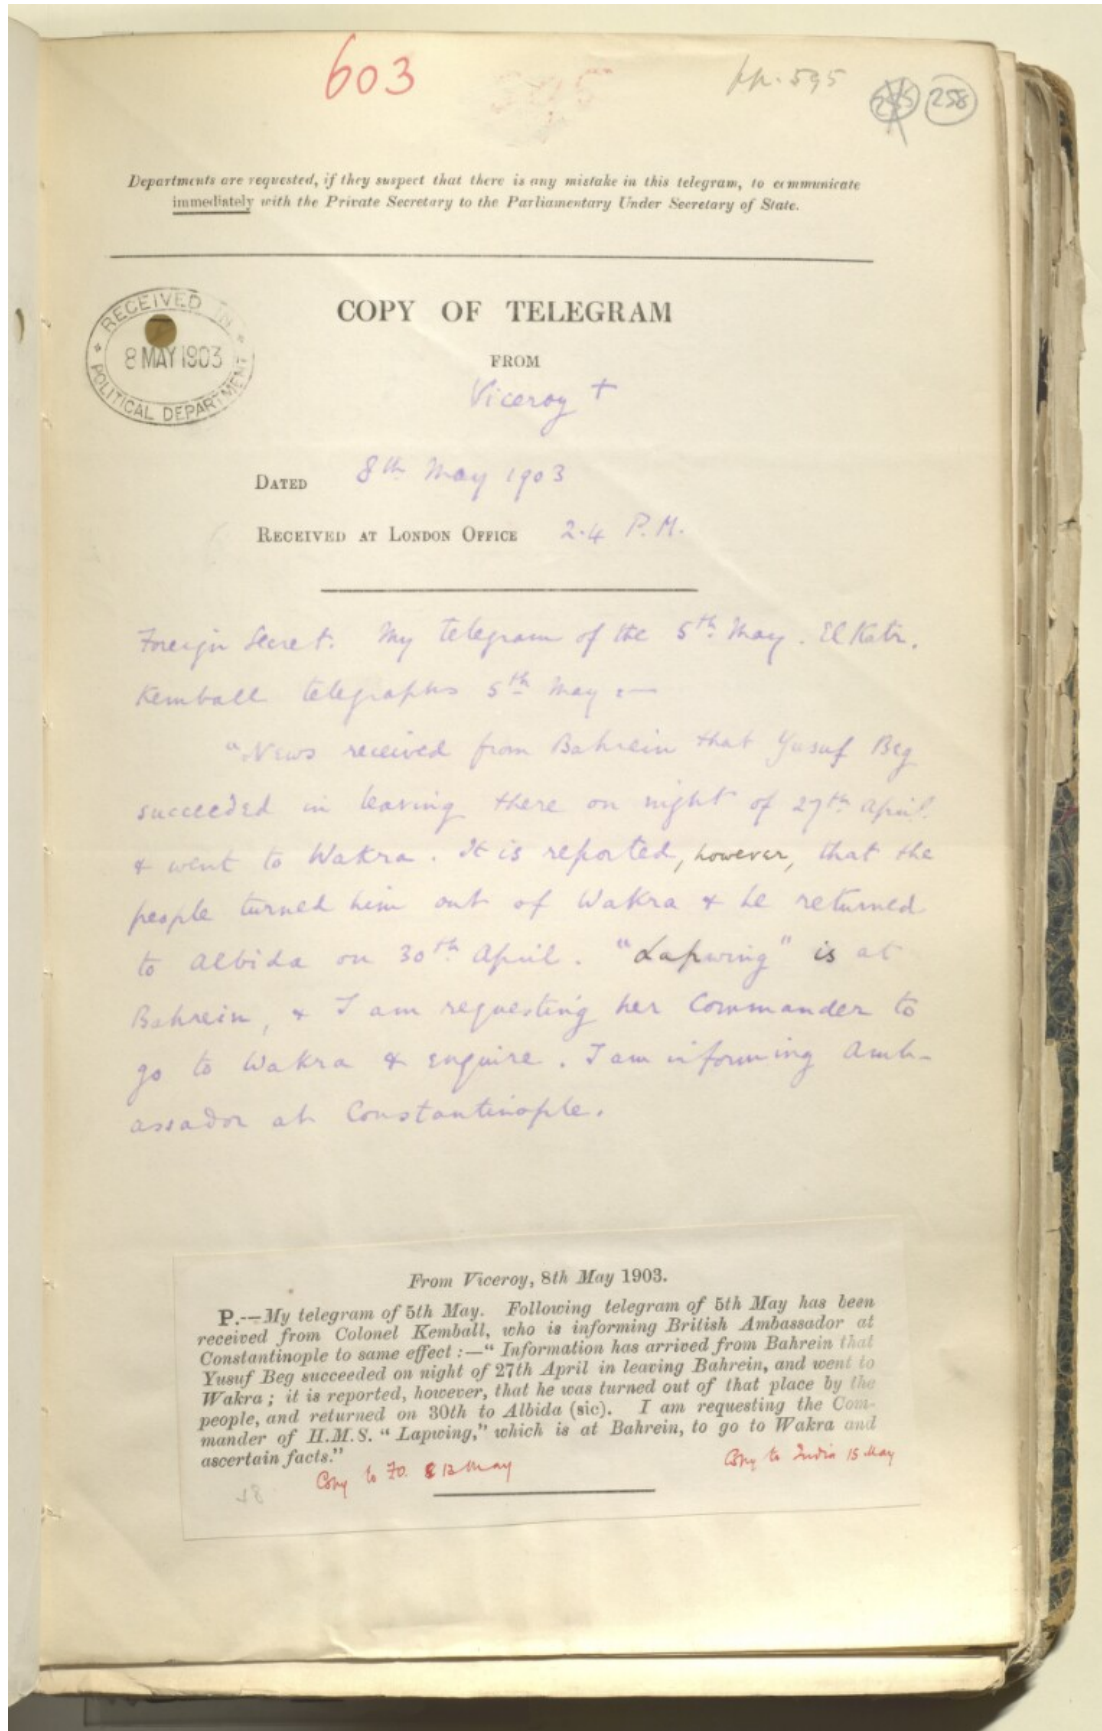 603
pp. 595
258
Departments are requested, if they suspect that there is any mistake in this telegram, to communicate
immediately with the Private Secretary to the Parliamentary Under Secretary of State.
RECEIVED IN
8 MAY 1903
POLITICAL DEPARTMENT
COPY OF TELEGRAM
FROM
Viceroy +
DATED 8th May 1903
RECEIVED AT LONDON OFFICE 2.4 P.M.
Foreign Secret. My telegram of the 5th May. El Katr.
Kemball telegraphs 5th May :—
"News received from Bahrein that Yusuf Beg
succeeded in leaving there on night of 27th April
& went to Wakra. It is reported, however, that the
people turned him out of Wakra & he returned
to Albida on 30th April. "Lapwing" is at
Bahrein, & I am requesting her Commander to
go to Wakra & enquire. I am informing Amb-
assador at Constantinople.
From Viceroy, 8th May 1903.
P.—My telegram of 5th May. Following telegram of 5th May has been
received from Colonel Kemball, who is informing British Ambassador at
Constantinople to same effect :—" Information has arrived from Bahrein that
Yusuf Beg succeeded on night of 27th April in leaving Bahrein, and went to
Wakra ; it is reported, however, that he was turned out of that place by the
people, and returned on 30th to Albida (sic). I am requesting the Com-
mander of H.M.S. " Lapwing," which is at Bahrein, to go to Wakra and
ascertain facts."
Copy to FO. 13 May
Copy to India 15 May